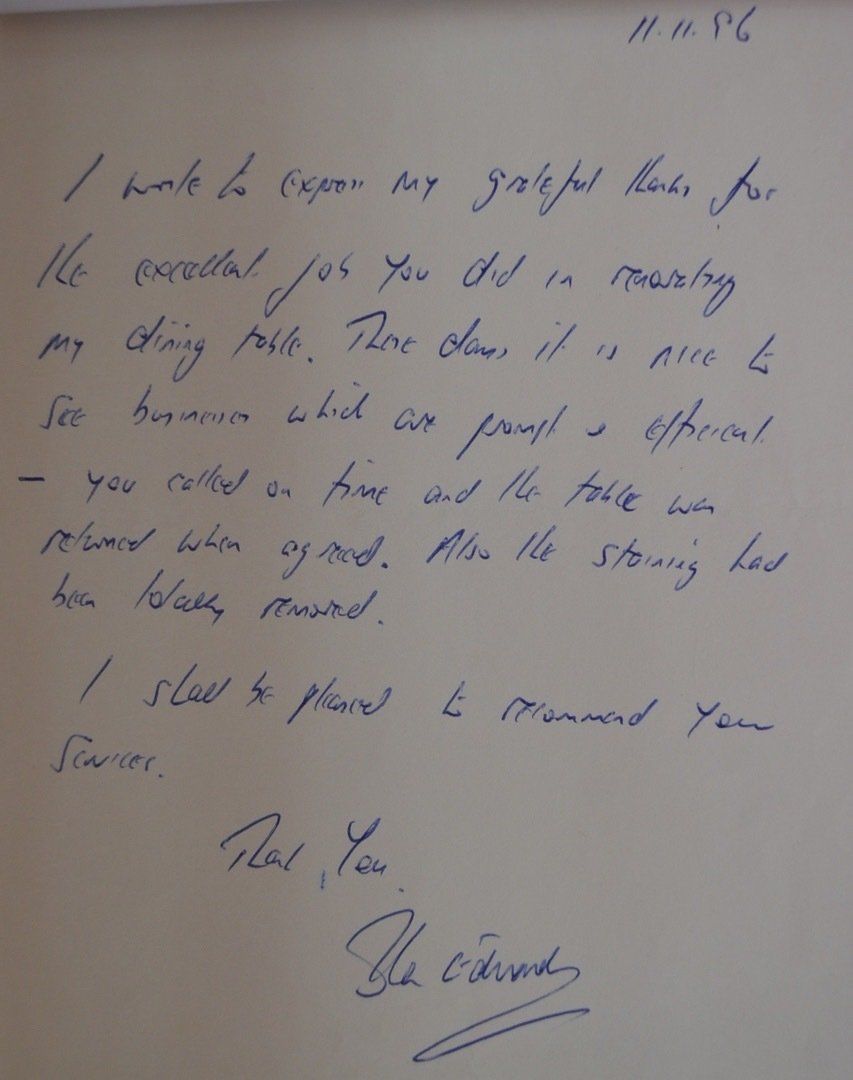 11.11.96
I write to express my grateful thanks for
the excellent job you did in renovating
my dining table. These days it is nice to
see businesses which are prompt & efficient
– you called on time and the table was
returned when agreed. Also the staining had
been totally removed.
I shall be pleased to recommend your
services.
Thank You.
Edwards